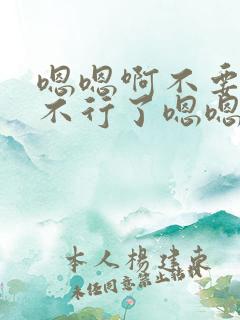 嗯嗯啊不要
不行了嗯嗯
本人杨建东
未经同意禁止转载